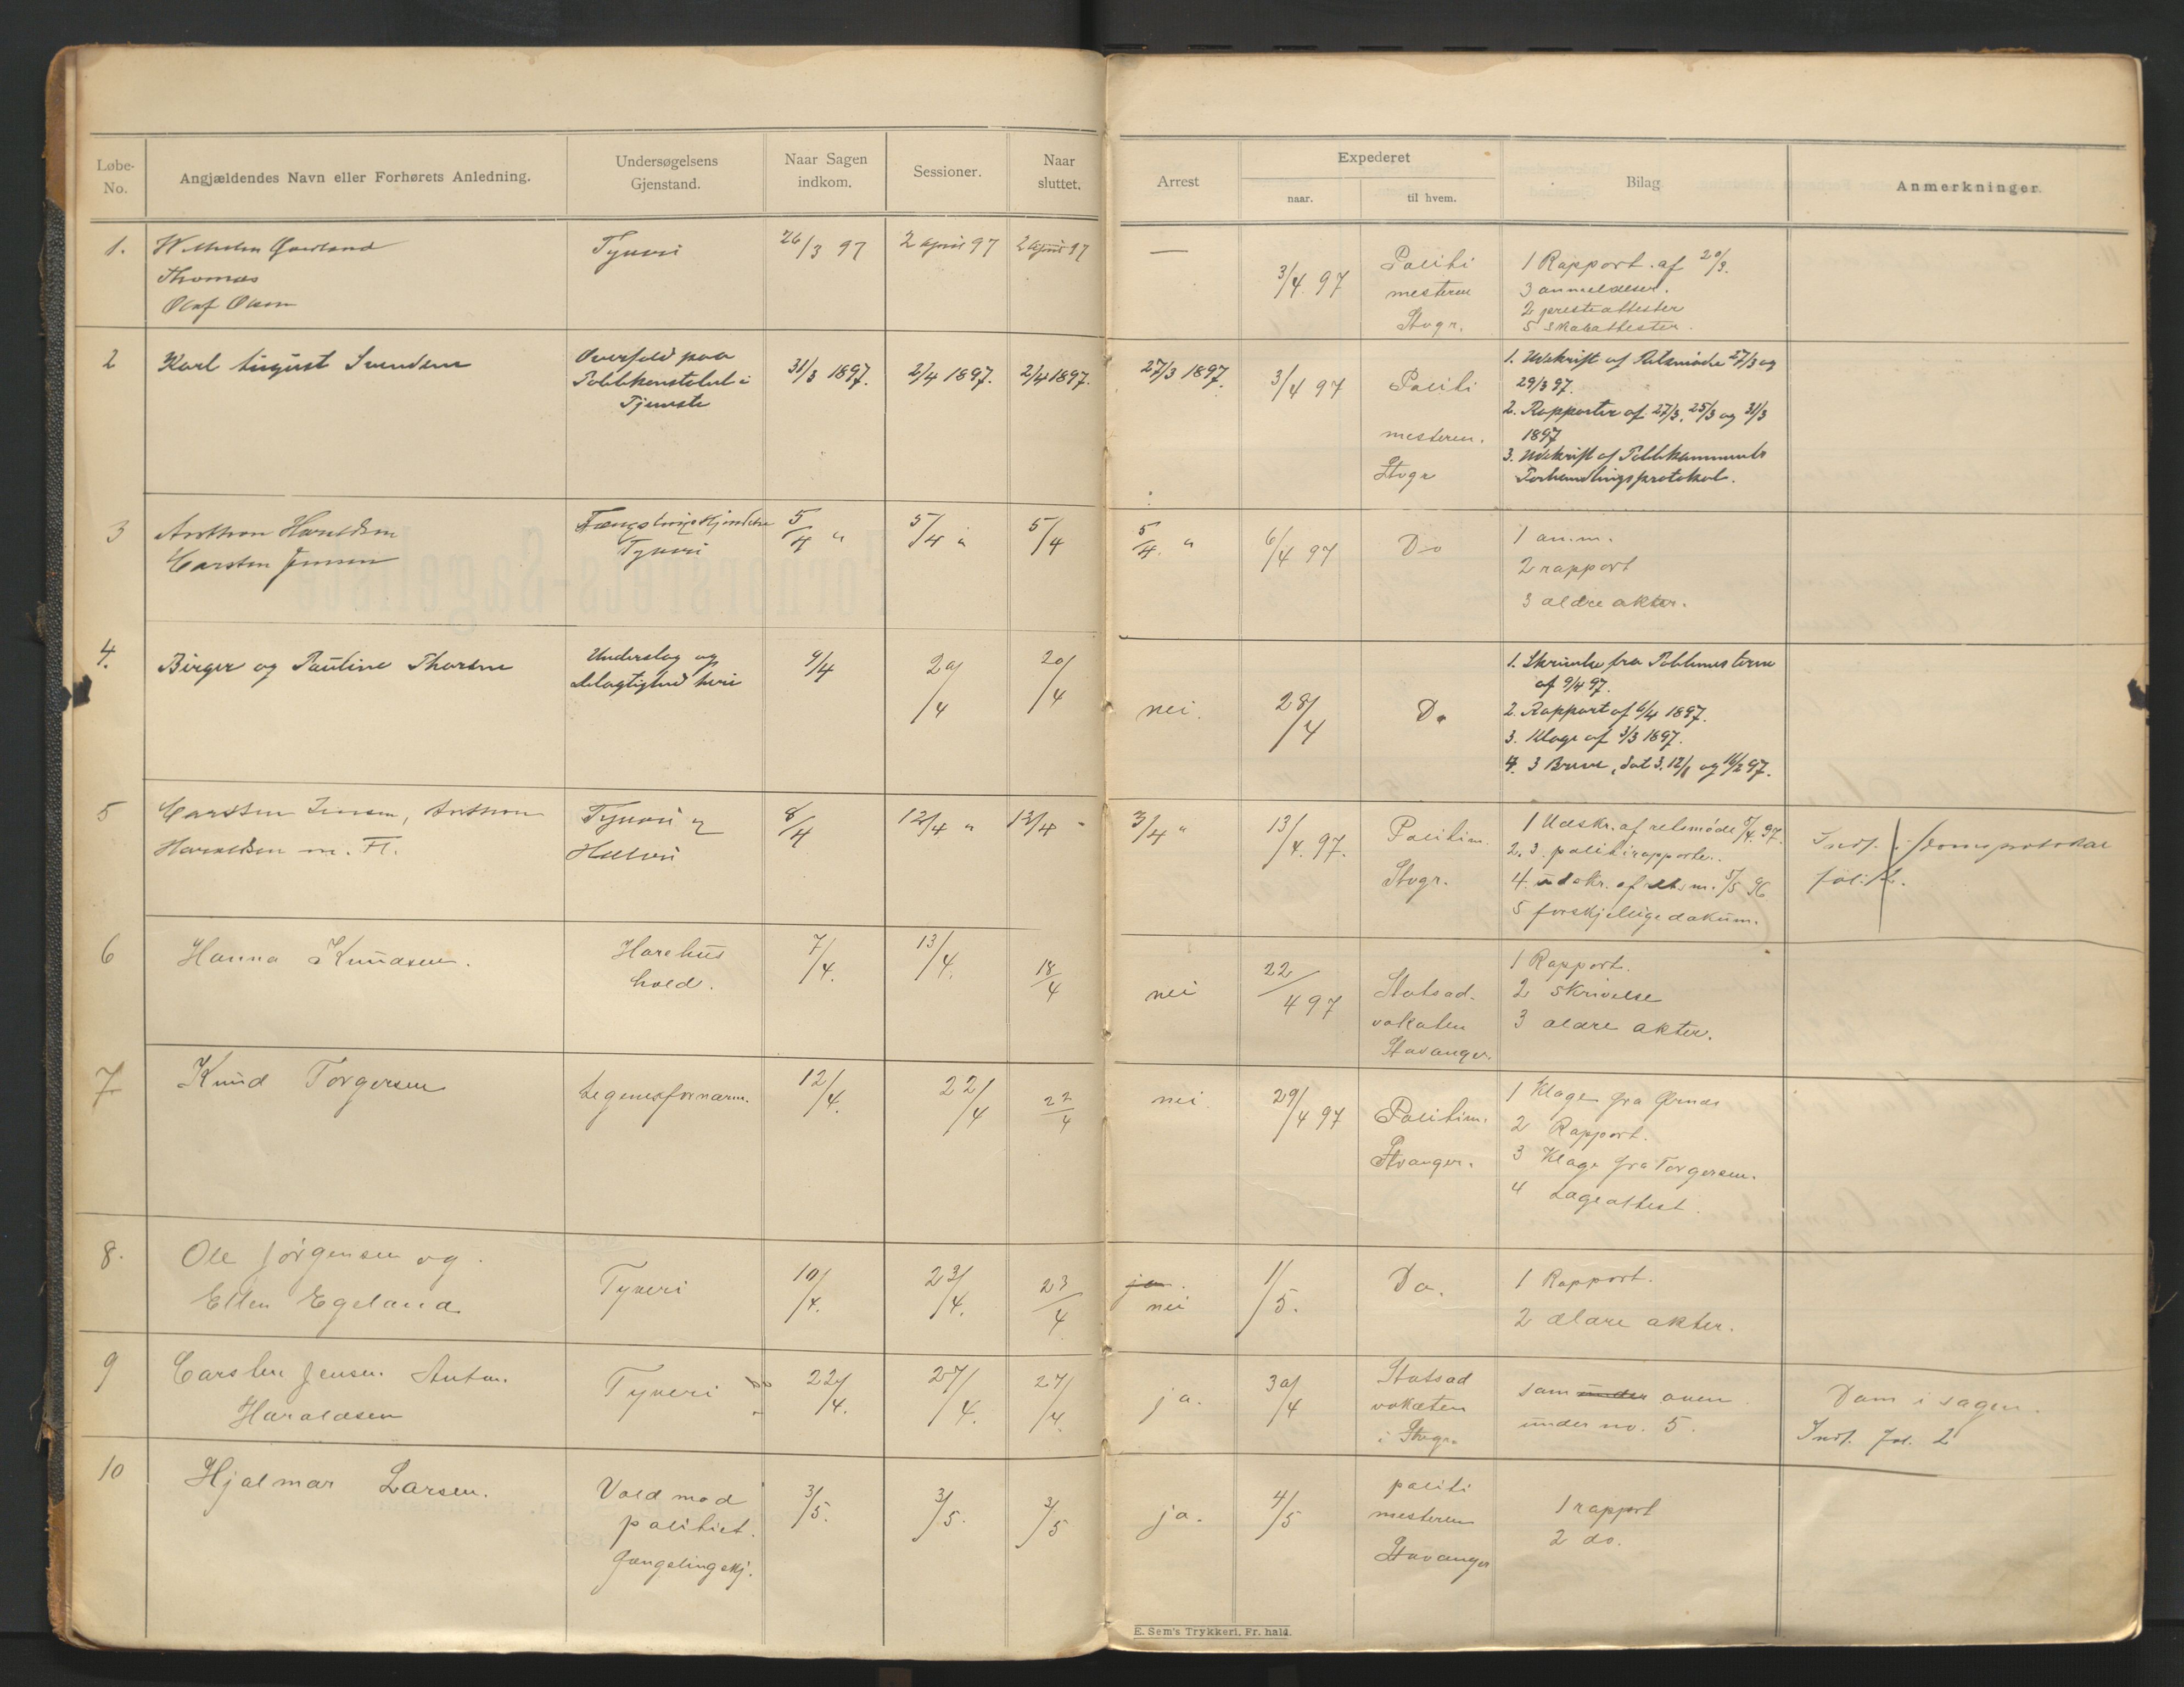 Løbe-No.
Angjældendes Navn eller Forhørets Anledning.
Undersøgelsens Gjenstand.
Naar Sagen indkom.
Sessioner.
Naar sluttet.
Arrest
Expederet
naar.
til hvem.
Bilag
Anmerkninger
1.
Thomas
Olaf Olsen
Tyveri
26/3 97
2 april 97
2 april 97
—
3/4 97
Politi
mesteren
Stvgr.
1 Rapport af 20/3.
3 anmeldelser.
2 presteattester
5 skoleattester.
2
Karl August Svendsen
Overfald paa
Politikonstabel i
Tjeneste
31/3 1897.
2/4 1897.
2/4 1897.
27/3 1897.
3/4 97
Politi
mesteren.
Stvgr
1. Udskrift af Retsmøde 27/3 og
29/3 97.
2. Rapporter af 27/3, 25/3 og 31/3
1897
3. Udskrift af Politikammerets
Forhandlingsprotokol.
3
Anthon Haraldsen
Carsten Jensen
Fængslingskjendelse
Tyveri
5/4 "
5/4 "
5/4
5/4. "
6/4 97
Do
1 anm.
2 rapport
3 ældre akter.
4.
Birger og Pauline Thorsen
Underslag og
delagtighed heri
9/4
20/4
20/4
nei.
28/4
Do
1. Skrivelse fra Politimesteren
af 9/4 97.
2. Rapport af 6/4 1897.
3. Klage af 3/3 1897.
4. 3 Breve, dat 3. 12/1 og 16/2 97.
5
Carsten Jensen, Anthon
Haraldsen m. Fl.
Tyveri og
Hæleri
8/4
12/4 "
12/4 "
3/4 "
13/4. 97.
Politim.
Stvgr.
1 Udskr. af retsmøde 5/4. 97.
2. 3. politirapporter.
4. udskr. af retsm. 5/5 96
5 forskjellige dokum.
Indf. i domsprotokol
fol. 2.
6
Hanna Knudsen.
Horehus
hold.
7/4.
13/4.
18/4
nei
22/4 97
Statsad-
vokaten
Stavanger.
1 Rapport.
2 skrivelse
3 ældre akter.
7
Knud Torgersen
Legemsfornærm.
12/4.
22/4
22/4
nei
29/4 97
Politim.
Stvanger.
1 Klage fra
2 Rapport.
3 Klage fra Torgersen.
4 Lægeattest.
8.
Ole Jörgensen og
Ellen Egeland
Tyveri
10/4.
23/4.
23/4
ja.
nei
1/5.
Do.
1 Rapport.
2 ældre akter.
9
Carsten Jensen. Anton.
Haraldsen
Tyveri
22/4.
27/4.
27/4.
ja.
30/4
Statsad
vokaten
i Stvgr.
som under oven
under no. 5.
Dom i sagen.
Indf. fol. 2
10
Hjalmar Larsen.
Vold mod
politiet.
Fængslingskj.
3/5.
3/5.
3/5
ja.
4/5
politi
mesteren
Stavanger
1 rapport
2 do.
E. Sem's Trykkeri, Fr. hald.